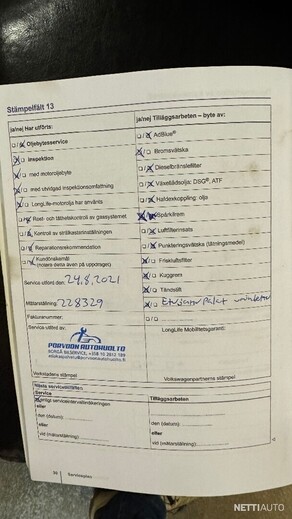 Stämpelfält 13
ja/nej Har utförts:
Oljebytesservice
Inspektion
med motoroljebyte
med utvidgad inspektionsomfattning
LongLife-motorolja har använts
Rost- och täthetskontroll av gassystemet
Kontroll av strålkastarinställningen
Reparationsrekommendation
Kundönskemål
(notera detta även på uppdraget)
Service utförd den: 24.8.2021
Mätarställning: 228329
Fakturanummer:
Service utförd av:
PORVOON AUTOHUOLTO
BORGÅ BILSERVICE
Verkstadens stämpel
ja/nej Tilläggsarbeten – byte av:
AdBlue®
Bromsvätska
Dieselbränslefilter
Växellådsolja: DSG®, ATF
Haldexkoppling: olja
Spårkåren
Luftfilterinsats
Punkteringsvätska (tätningsmedel)
Friskluftsfilter
Kuggrem
Tändstift
LongLife Mobilitetsgaranti:
Volkswagenpartnerns stämpel
Nästa servicetillfällen:
Service
enligt serviceintervallindikeringen
eller
den (datum):
eller
vid (mätarställning):
Tilläggsarbeten
den (datum):
eller
vid (mätarställning):
Serviceplan
NETTIAUTO